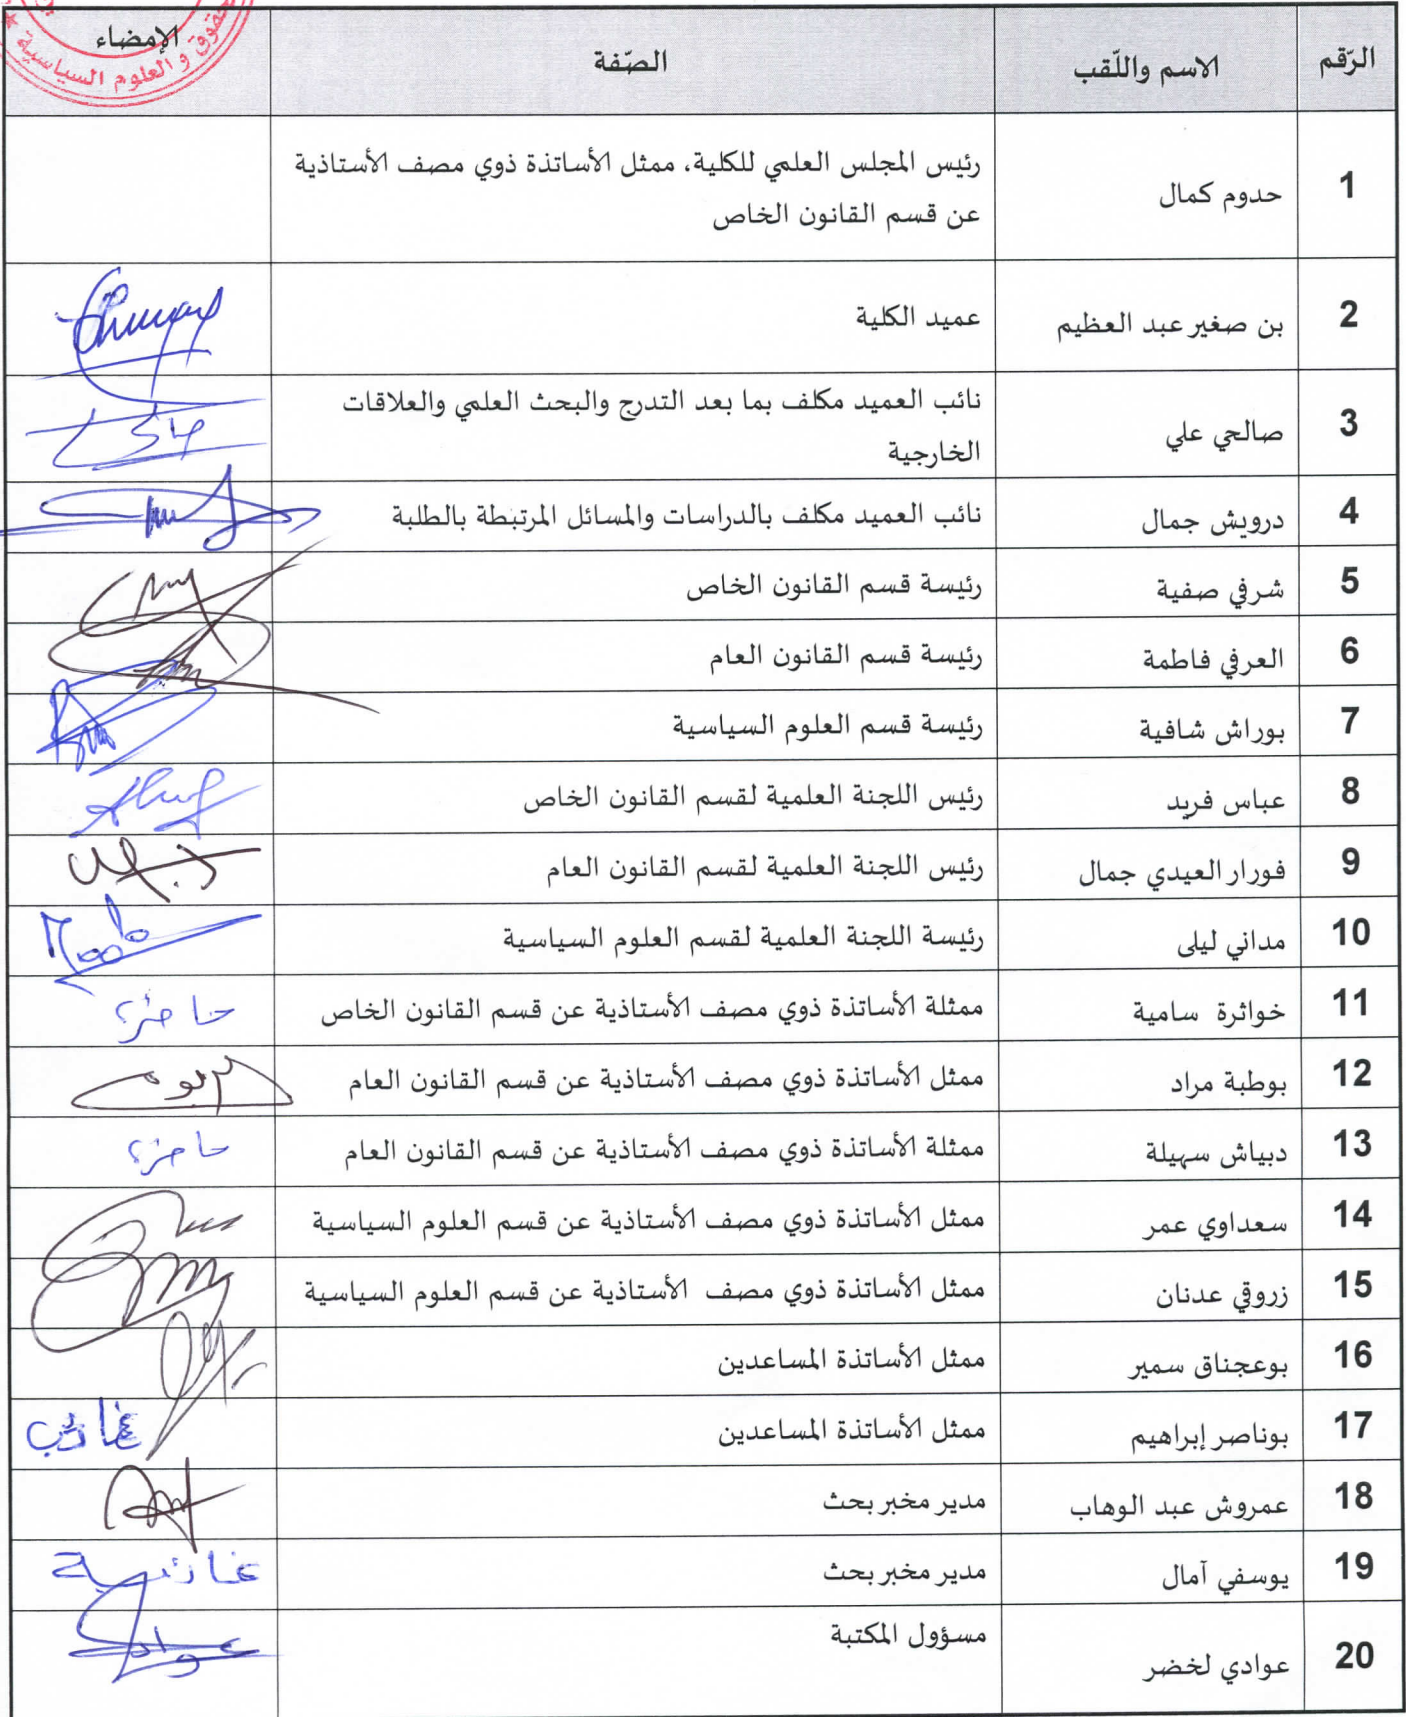 الرّقم الاسم واللّقب الصّفة الإمضاء
حقوق و العلوم السياسية
1 حدوم كمال رئيس المجلس العلمي للكلية، ممثل الأساتذة ذوي مصف الأستاذية
عن قسم القانون الخاص
2 بن صغير عبد العظيم عميد الكلية
3 صالحي علي نائب العميد مكلف بما بعد التدرج والبحث العلمي والعلاقات
الخارجية
4 درويش جمال نائب العميد مكلف بالدراسات والمسائل المرتبطة بالطلبة
5 شرفي صفية رئيسة قسم القانون الخاص
6 العرفي فاطمة رئيسة قسم القانون العام
7 بوراش شافية رئيسة قسم العلوم السياسية
8 عباس فريد رئيس اللجنة العلمية لقسم القانون الخاص
9 فورار العيدي جمال رئيس اللجنة العلمية لقسم القانون العام
10 مداني ليلى رئيسة اللجنة العلمية لقسم العلوم السياسية
11 خواثرة سامية ممثلة الأساتذة ذوي مصف الأستاذية عن قسم القانون الخاص
12 بوطبة مراد ممثل الأساتذة ذوي مصف الأستاذية عن قسم القانون العام
13 دبياش سهيلة ممثلة الأساتذة ذوي مصف الأستاذية عن قسم القانون العام
14 سعداوي عمر ممثل الأساتذة ذوي مصف الأستاذية عن قسم العلوم السياسية
15 زروقي عدنان ممثل الأساتذة ذوي مصف الأستاذية عن قسم العلوم السياسية
16 بوعجناق سمير ممثل الأساتذة المساعدين
17 بوناصر إبراهيم ممثل الأساتذة المساعدين غائب
18 عمروش عبد الوهاب مدير مخبر بحث
19 يوسفي آمال مدير مخبر بحث غائبة
20 عوادي لخضر مسؤول المكتبة